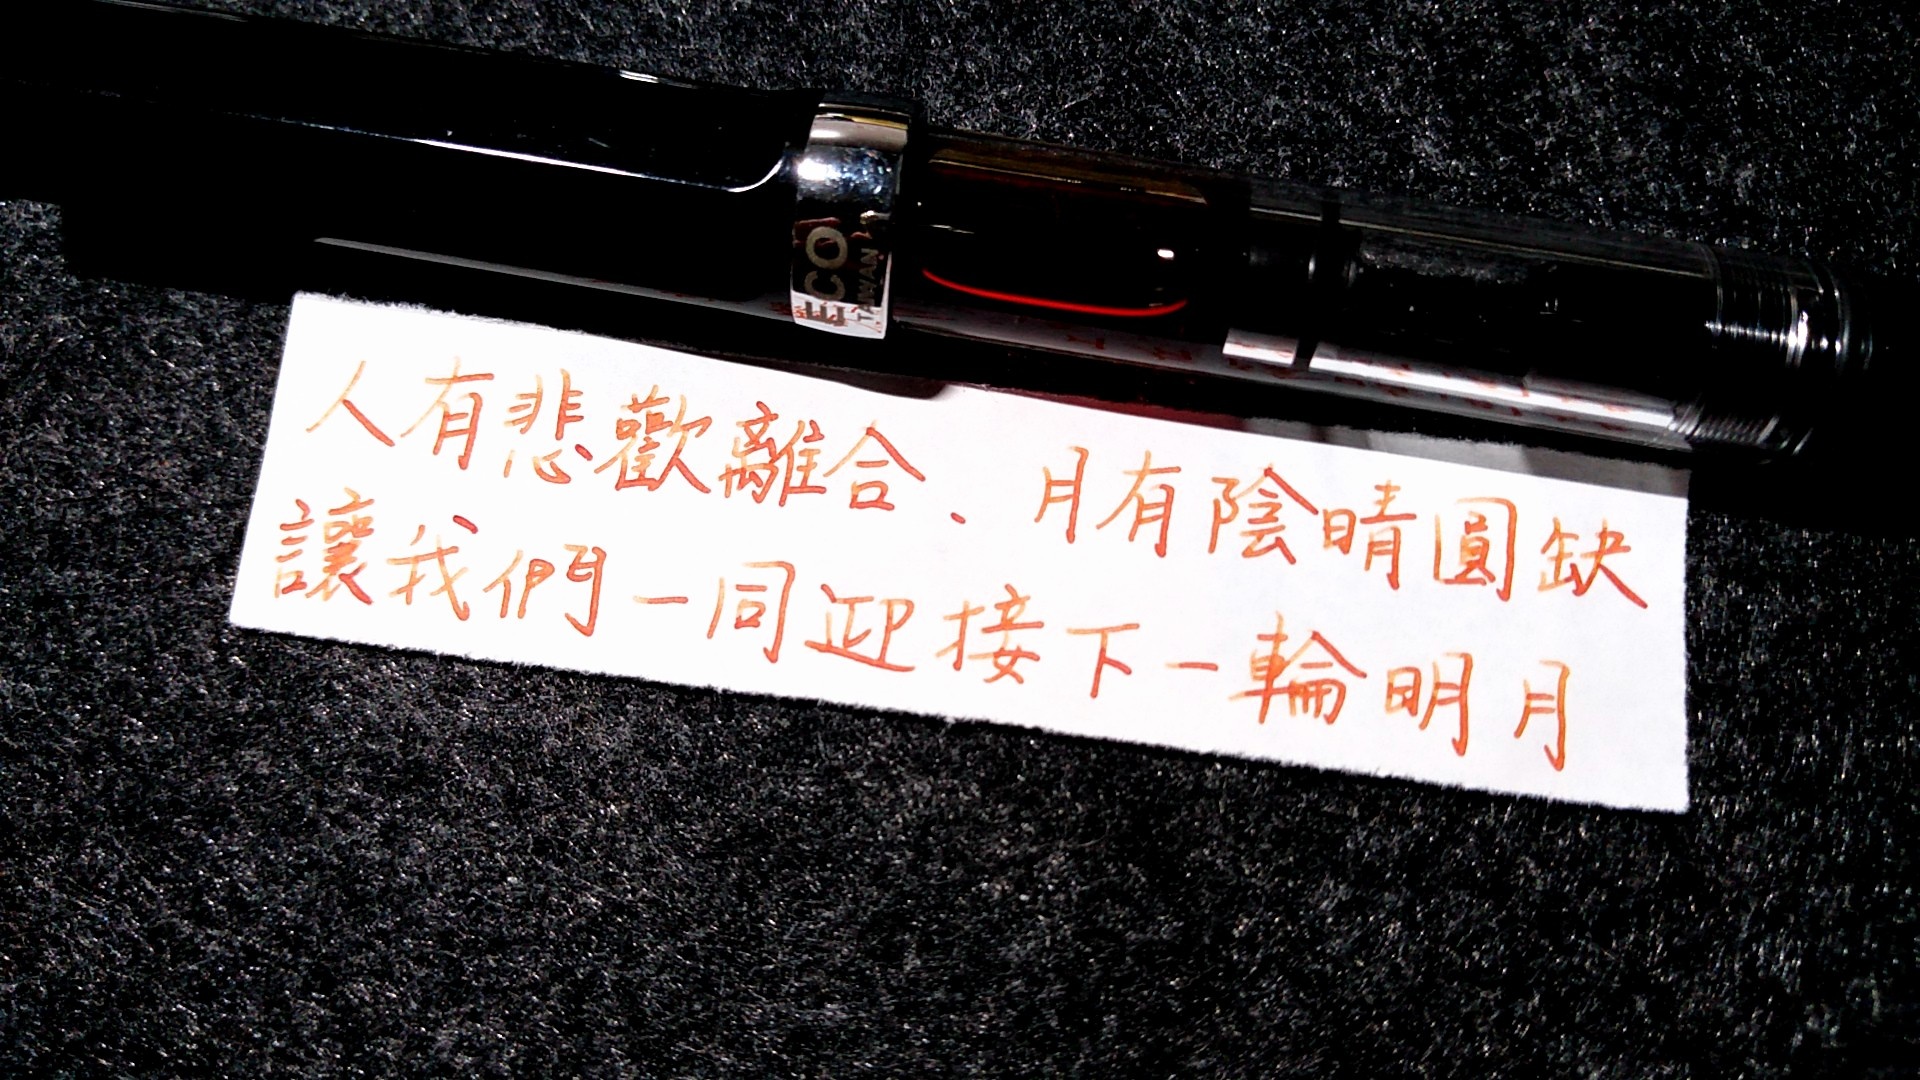 ECO
TAIWAN
人有悲歡離合、月有陰晴圓缺
讓我們一同迎接下一輪明月